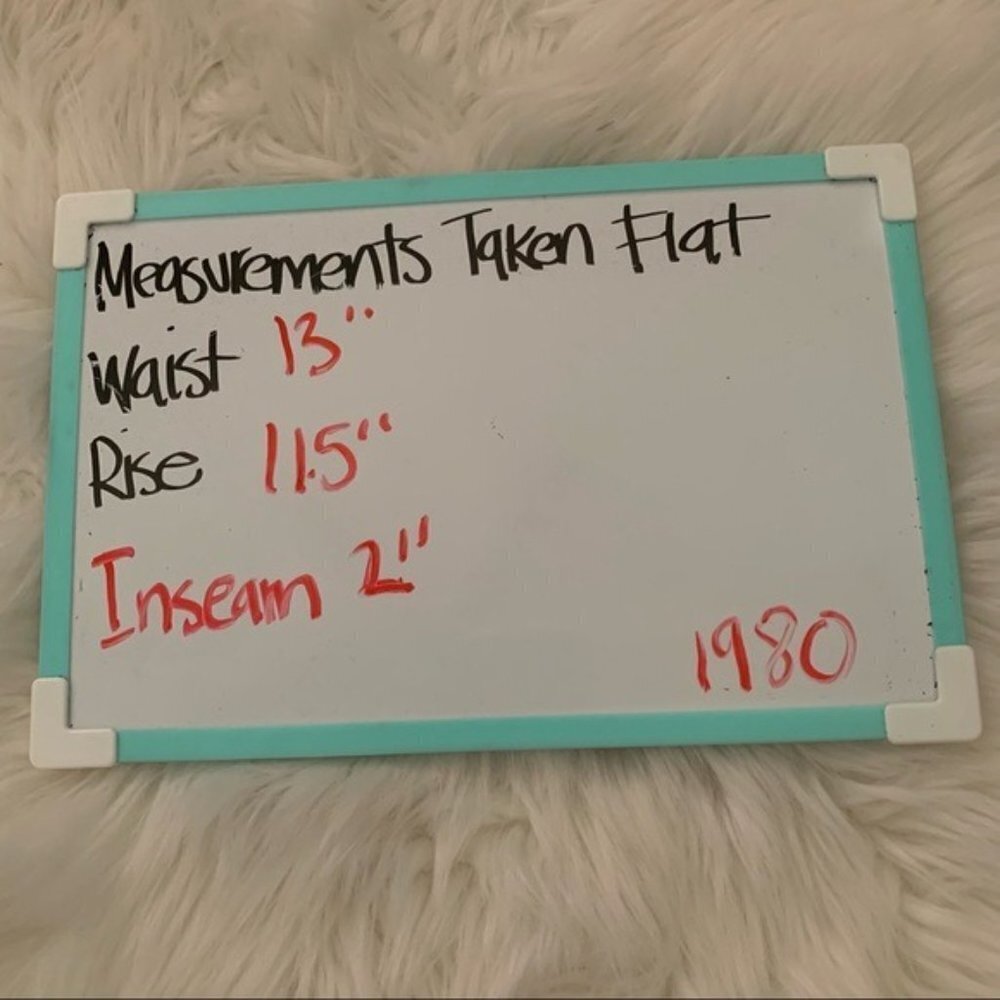 Measurements Taken Flat
Waist 13"
Rise 11.5"
Inseam 2"
1980